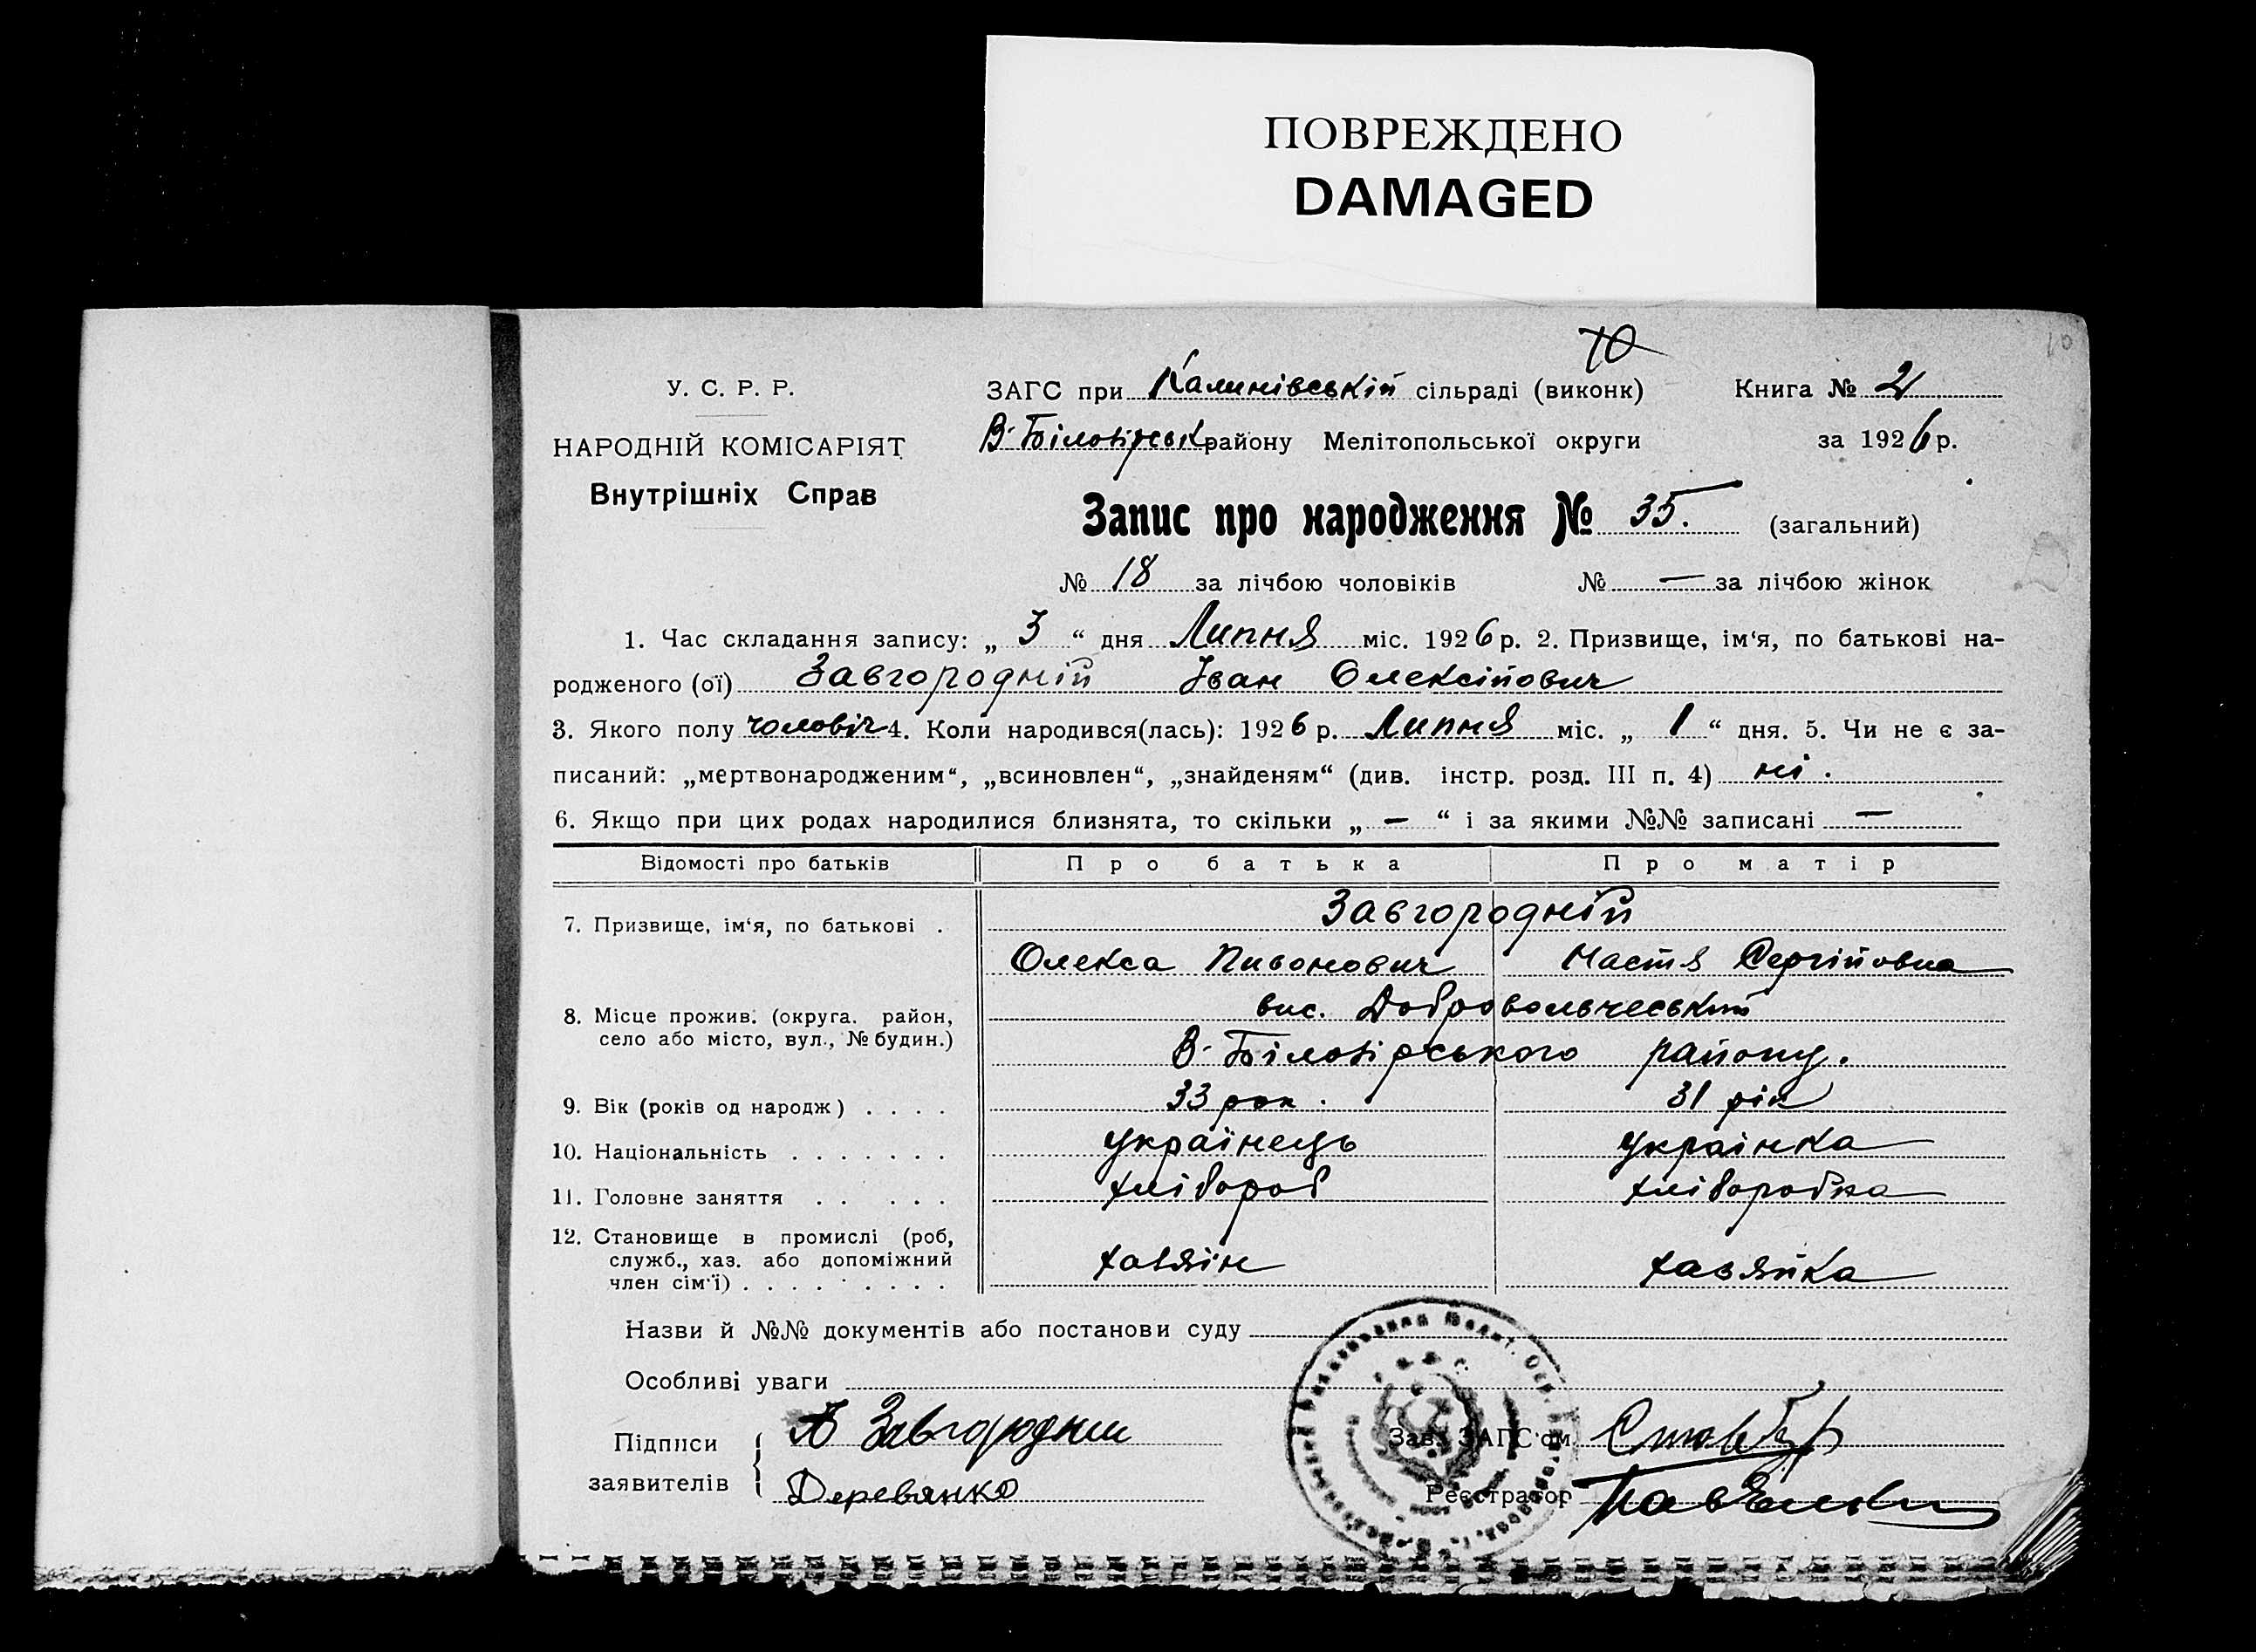 ПОВРЕЖДЕНО
DAMAGED
10
У. С. Р. Р.
НАРОДНІЙ КОМІСАРІЯТ
Внутрішніх Справ
ЗАГС при Калинівській сільраді (виконк)
В-Білозірськ району Мелітопольської округи
Книга № 2
за 1926 р.
Запис про народження № 35. (загальний)
№ 18 за лічбою чоловіків № — за лічбою жінок
1. Час складання запису: „ 3 “ дня Липня міс. 1926 р. 2. Призвище, ім‘я, по батькові на-
родженого (ої) Завгородній Іван Олексійович
3. Якого полу чоловіч 4. Коли народився(лась): 1926 р. Липня міс. „ 1 “ дня. 5. Чи не є за-
писаний: „мертвонародженим“, „всиновлен“, „знайденям“ (див. інстр. розд. III п. 4) ні.
6. Якщо при цих родах народилися близнята, то скільки „ — “ і за якими №№ записані —
Відомості про батьків Про батька Про матір
7. Призвище, ім‘я, по батькові . Завгородній
Олекса Пивонович Настя Сергійовна
8. Місце прожив. (округа. район, село або місто, вул., № будин.) вис. Добровольчеський
В-Білозірського району.
9. Вік (років од народж) . . . . 33 рок. 31 рік
10. Національність . . . . . . . українець українка
11. Головне заняття . . . . . хлібороб хліборобка
12. Становище в промислі (роб, служб., хаз. або допоміжний член сім‘ї) . . . . . . . . . хазяїн хазяйка
Назви й №№ документів або постанови суду
Особливі уваги
Підписи заявителів
Завгородний
Деревянко
Зав. ЗАГС‘ом
Реєстратор